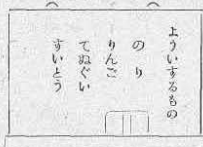 よういするもの
のり
りんご
てぬぐい
すいとう